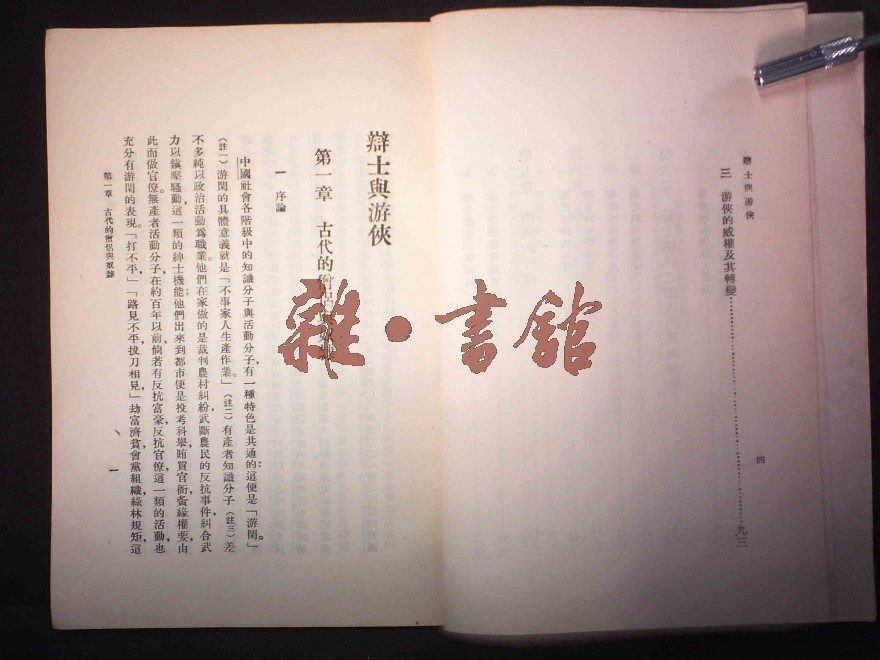 辯士與游俠
三 游俠的威權及其轉變……………………九三
四
辯士與游俠
第一章 古代的僧侶與奴隸
一 序論
中國社會各階級中的知識分子與活動分子,有一種特色是共通的:這便是「游閑」。
(註一)游閑的具體意義就是「不事家人生產作業」。(註二)有產者知識分子(註三)差
不多純以政治活動爲職業。他們在家做的是裁判農村糾紛,武斷農民的反抗事件,糾合武
力以鎮壓騷動,這一類的紳士機能;他們出來到都市便是投考科舉,賄買官衙,夤緣權要,由
此而做官僚。無產者活動分子在約百年以前,倘若有反抗富豪,反抗官僚,這一類的活動,也
充分有游閑的表現。「打不平」,「路見不平,拔刀相見」,劫富濟貧,會黨組織,綠林規矩,這
第一章 古代的僧侶與奴隸
一
雜·書館